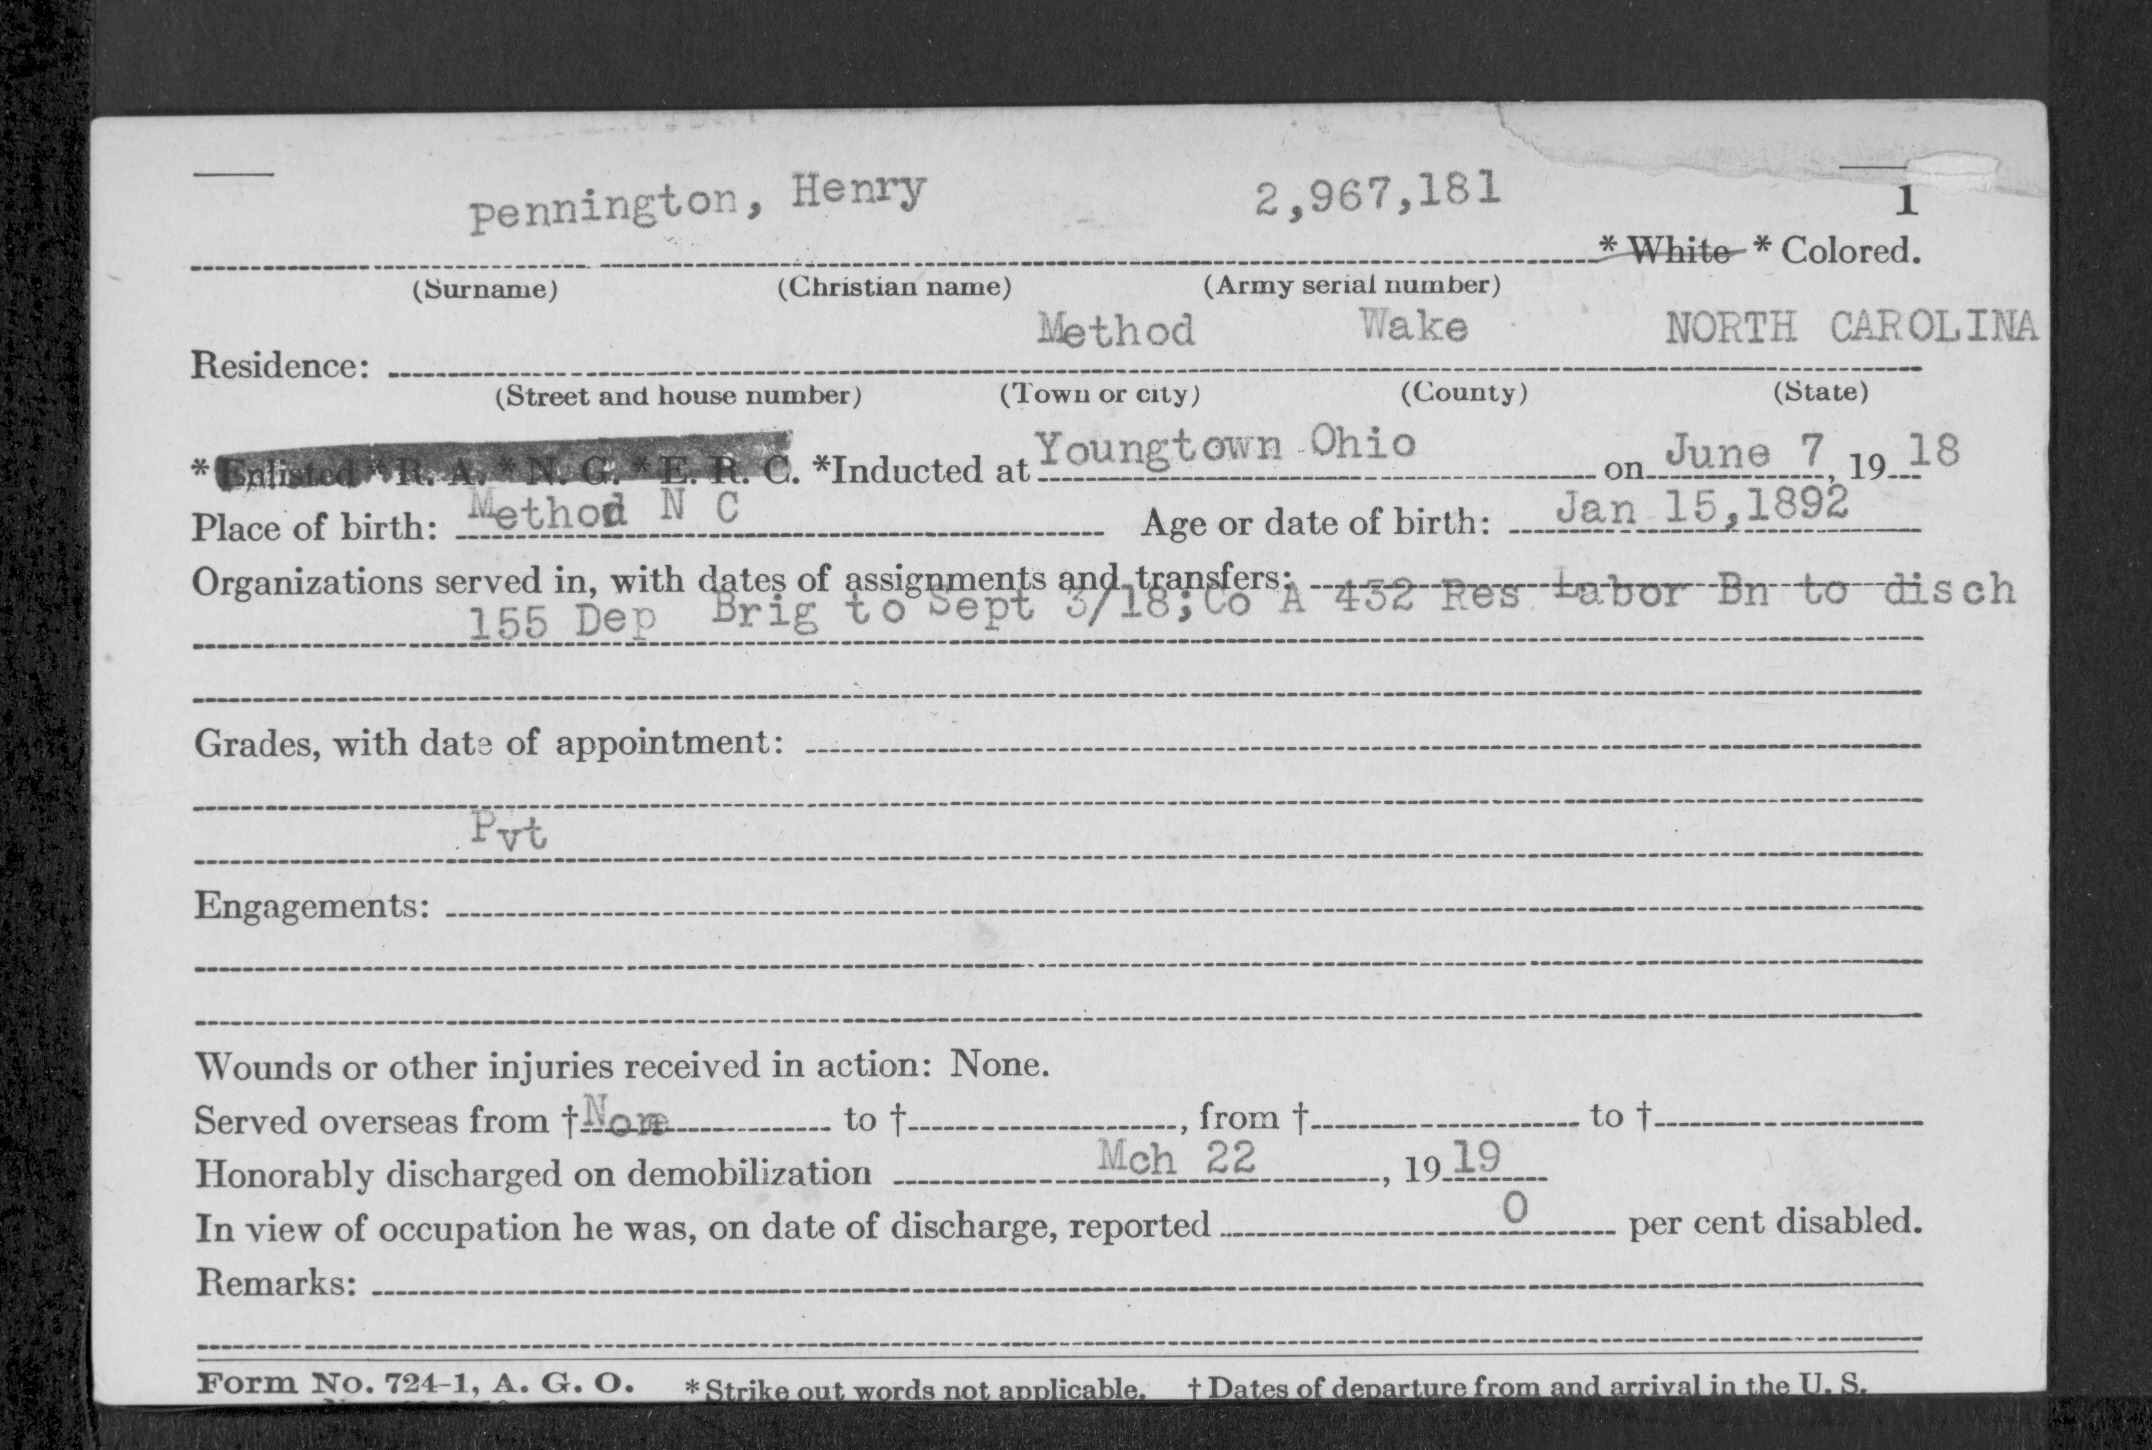 pennington, Henry 2,967,181 1
* White * Colored.
(Surname) (Christian name) (Army serial number)
Method Wake NORTH CAROLINA
Residence:
(Street and house number) (Town or city) (County) (State)
* Enlisted * R. A. * N. G. * E. R. C. *Inducted at Youngtown Ohio on June 7, 19 18
Place of birth: Method N C Age or date of birth: Jan 15,1892
Organizations served in, with dates of assignments and transfers:
155 Dep Brig to Sept 3/18; Co A 432 Res Labor Bn to disch
Grades, with date of appointment:
Pvt
Engagements:
Wounds or other injuries received in action: None.
Served overseas from † None to †, from † to †
Honorably discharged on demobilization Mch 22, 19 19
In view of occupation he was, on date of discharge, reported 0 per cent disabled.
Remarks:
Form No. 724-1, A. G. O. * Strike out words not applicable. † Dates of departure from and arrival in the U. S.